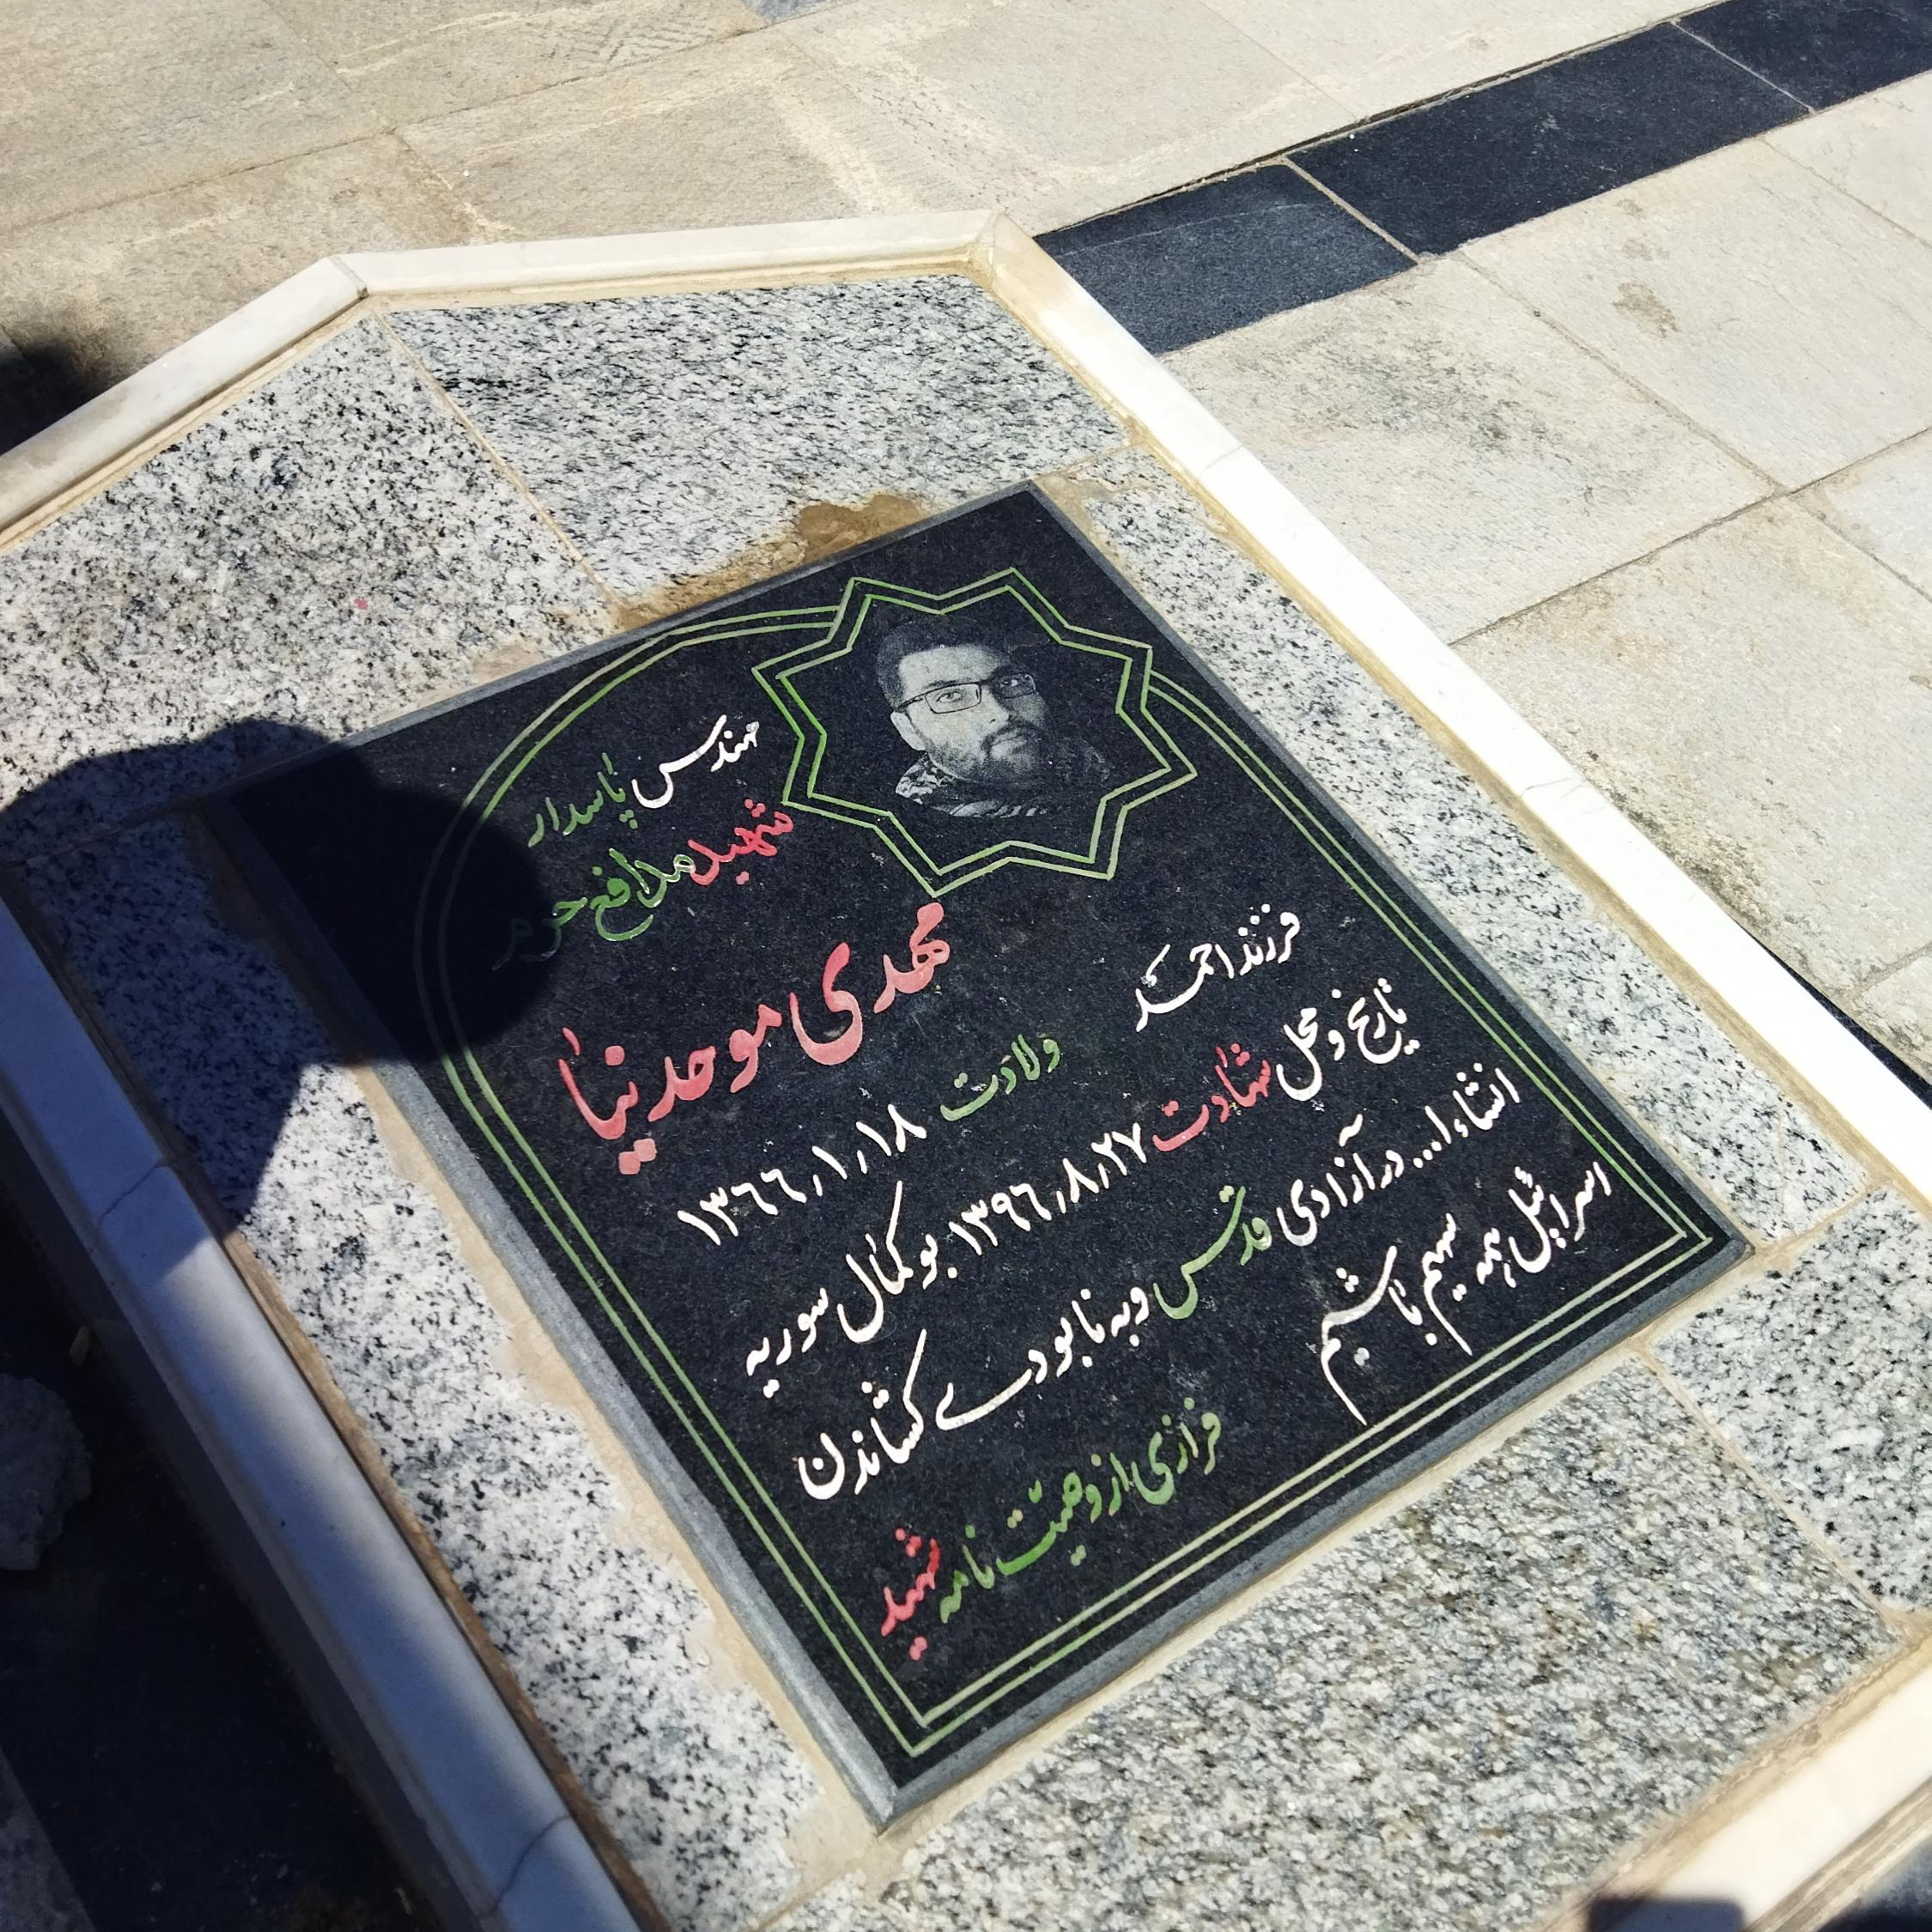 مهندس پاسدار
شهید مدافع حرم
مهدی موحد نیا
فرزند احمد
ولادت ۱۳۶۶٫۱٫۱۸
تاریخ و محل شهادت ۱۳۹۶٫۸٫۲۷ بوکمال سوریه
انشاءا... در آزادی قدس و به نابودے کشاندن
اسرائیل، همه سهیم باشیم
فرازی از وصیت نامه شهید